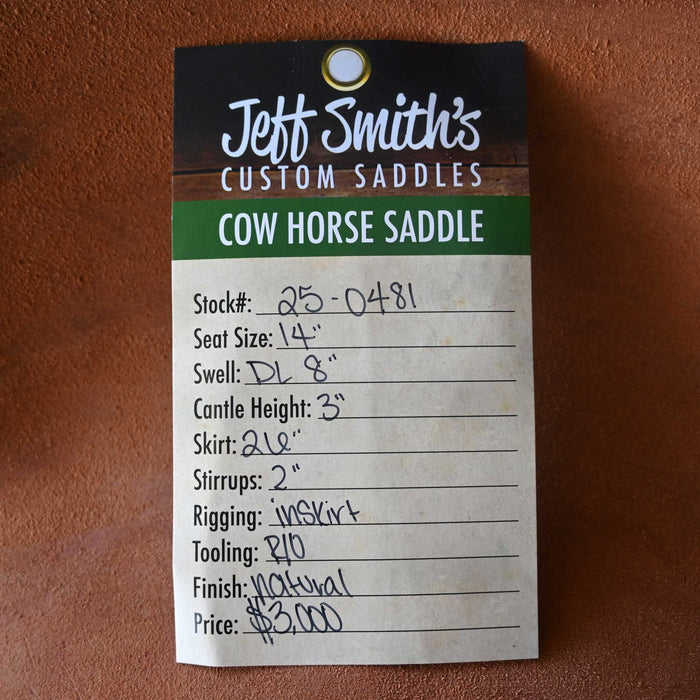 Jeff Smith's
CUSTOM SADDLES
COW HORSE SADDLE
Stock#: 25-0481
Seat Size: 14"
Swell: DL 8"
Cantle Height: 3"
Skirt: 26"
Stirrups: 2"
Rigging: inskirt
Tooling: R/O
Finish: natural
Price: $3,000